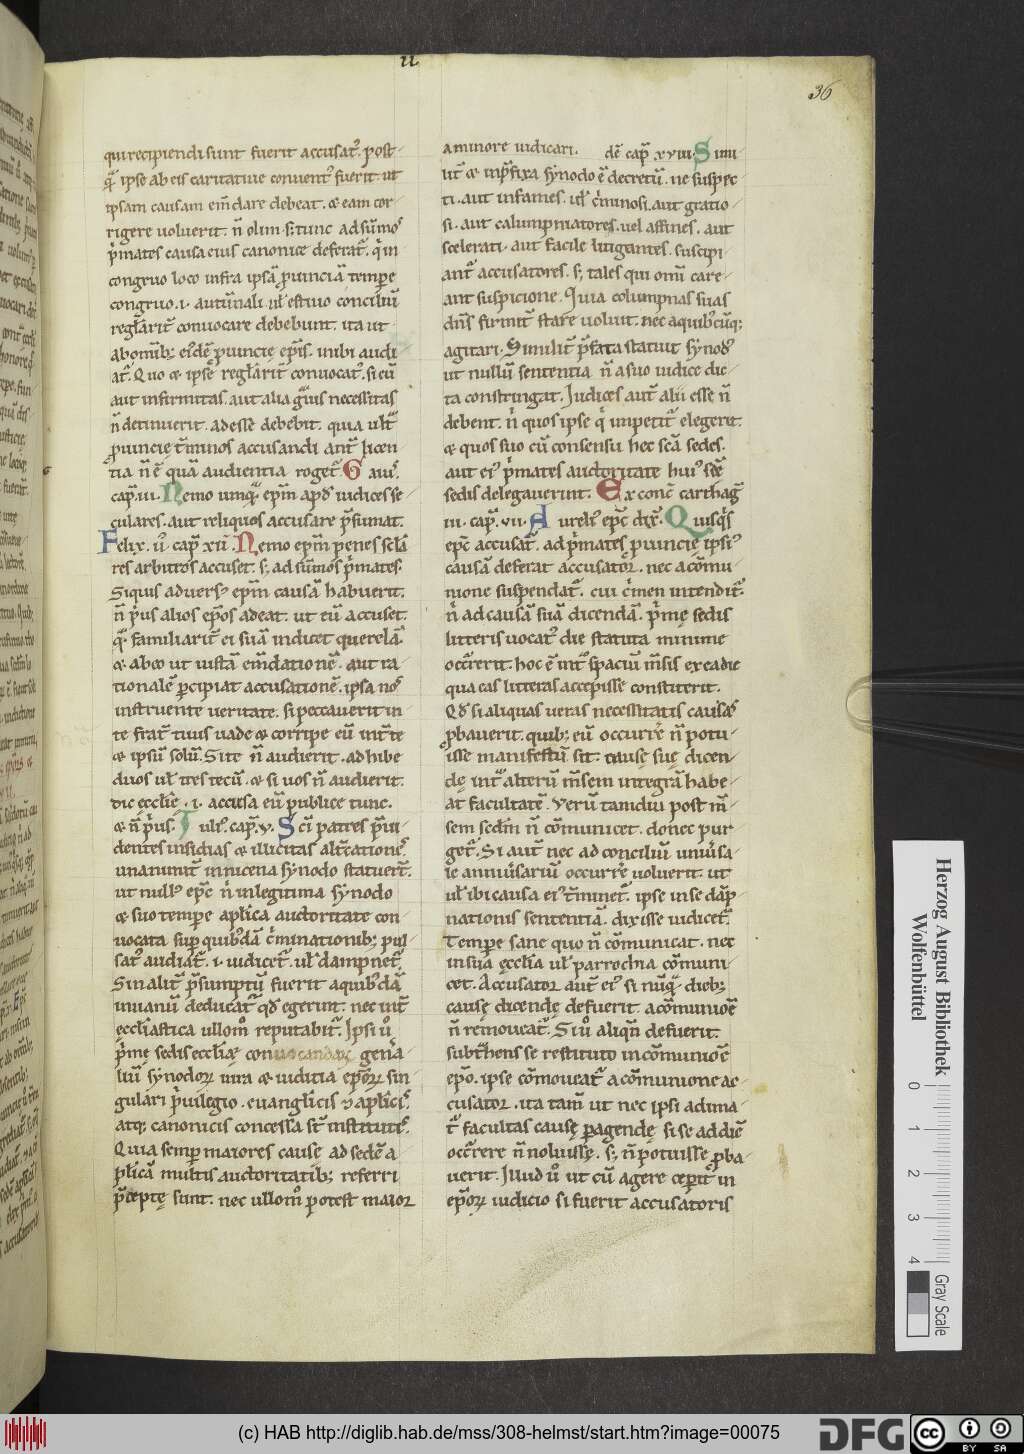 ii
36
qui recipiendi sunt fuerit accusat᷒. post-
q̄ ipse ab eis caritatiue conuent᷒ fuerit. ut
ipsam causam em̄dare debeat. & eam cor-
rigere uoluerit. n̄ olim. s; tunc ad sūmos
p̄mates causa eius canonice deferat̄. q̇ in
congruo loco infra ipsā ꝓuinciā tempe
congruo .i. autūnali ul̄ estiuo conciliū
regl̄arit̄ conuocare debebunt. ita ut
ab omīb; ei᷒dē ꝓuincie ep̄is. inibi audi-
at̄. Quo & ipse regl̄arit̄ conuocat᷒. si eū
aut infirmitas. aut alia g̈uis necessitas
n̄ detinuerit. adesse debebit. quia ult̄
ꝓuincie t̄minos accusandi ant̄ licen-
tia n̄ ē quā audientia roget᷒. G aius.
cap̄. iii. Nemo umq̄ ep̄m apd̄ iudices se-
culares. aut reliquos accusare p̄sumat.
Felix. u̇ cap̄ xii. Nemo ep̄m penes sclā-
res arbitros accuset. s; ad sūmos p̄mates.
Siquis aduers᷒ ep̄m causā habuerit.
n̄ p̄us alios ep̄os adeat. ut eū accuset.
q̄ familiarit̄ ei suā indicet querelā.
& ab eo ut iustā em̄dationē. aut ra-
tionale ꝑcipiat accusationē. ipsa nos
instruente ueritate. si peccauerit in
te frat̄ tuus uade & corripe eū int̄ te
& ipsū solū. Si te n̄ audierit. adhibe
duos ul̄ tres tecū. & si uos n̄ audierit.
dic ecclīe .i. accusa eū publice tunc.
& n̄ p̄us. Iuli᷒. cap̄. v. Scī patres p̄ui-
dentes insidias & illicitas alt̄cationes.
unanimit̄ in nicena synodo statuert̄.
ut null᷒ ep̄c n̄ in legitima synodo
& suo tempe aplīca auctoritate con-
uocata sup quib᷒dā c̄minationib; pul-
sat᷒ audiat̄ .i. iudicet̄. ul̄ dampnet̄.
Sin alit̄ p̄sumptū fuerit a quib᷒dā
in uanū deducat̄ qd̄ egerint. nec int̄
ecclīastica ullom̊ reputabit̄. Ipsi u̇
p̄me sedis ecclīæ conuocandæ gen̄a-
liū synodoꝝ iura & iuditia ep̄oꝝ sin-
gulari p̄uilegio. euanglīcis & aplīcis.
atq; canonicis concessa st̄ institutis.
Quia semp maiores cause ad sedē a-
plīcā multis auctoritatib; referri
p̄cepte sunt. nec ullom̊ potest maior
a minore iudicari. dē cap̄ xviii. Simi-
lit̄ & inp̄fixa synodo ē decretū. ne suspec-
ti. aut infames. ul̄ c̄minosi. aut gratio-
si. aut calumpniatores. uel affines. aut
scelerati. aut facile litigantes. suscipi-
ant̄ accusatores. s; tales qui omī care-
ant suspicione. Quia columpnas suas
dn̄s firmit̄ stare uoluit. nec a quib᷒cūq;
agitari. Similit̄ p̄fata statuit synod᷒
ut nullū sententia n̄ a suo iudice dic-
ta constringat. Iudices aut̄ alii esse n̄
debent. n̄ quos ipse q̇ impetit᷒ elegerit.
& quos suo cū consensu hec scā sedes.
aut ei᷒ p̄mates auctoritate hui᷒ scē
sedis delegauerint. Ex conc̄ carthaḡ
iii. cap̄. vii. Aureli᷒ ep̄c dix̄. Quisq̇s
ep̄c accusat̄. ad p̄mates ꝓuincie ipsi᷒
causā deferat accusator. nec a cōmu-
nione suspendat̄. cui c̄men intendit̄.
n̄ ad causā suā dicendā. p̄me sedis
litteris uocat᷒ die statuta minime
occ̄rerit. hoc ē int̄ spaciū m̄sis ex ea die
qua eas litteras accepisse constiterit.
Qd̄ si aliquas ueras necessitatis causas
ꝓbauerit. quib; eū occurre n̄ potu-
isse manifestū sit. cause sue dicen-
de int̄ alterū m̄sem integrā habe-
at facultatē. Verū tamdiu post m̄-
sem scdm̄ n̄ cōmunicet. donec pur-
get̄. Si aut̄ nec ad conciliū uniu̇sa-
le anniu̇sariū occurre uoluerit. ut
ul̄ ibi causa ei᷒ t̄minet̄. ipse in se dāp-
nationis sententiā. dixisse iudicet̄.
Tempe sane quo n̄ cōmunicat. nec
in sua ecclīa ul̄ parrochia cōmuni-
cet. Accusator aut̄ ei᷒ si nūq̄ dieb;
cause dicende defuerit. a cōmunioē
n̄ remoueat̄. Si u̇ aliqn̄ defuerit.
subt̄hens se restituto in cōmunioē
ep̄o. ipse cōmoueat̄ a cōmunione ac-
cusator. ita tam̄ ut nec ipsi adima-
t̄ facultas cause ꝑagende. si se ad diē
occ̄rere n̄ noluisse. s; n̄ potuisse ꝓba-
uerit. Illud u̇ ut cū agere ceperit in
ep̄oꝝ iudicio si fuerit accusatoris
Herzog August Bibliothek
Wolfenbüttel
0 1 2 3 4
Gray Scale
(c) HAB http://diglib.hab.de/mss/308-helmst/start.htm?image=00075
DFG
cc BY SA